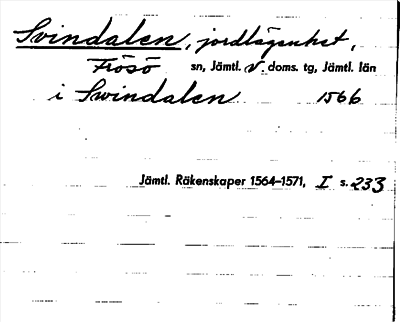 Svindalen, jordlägenhet,
Frösö sn, Jämtl. v. doms. tg, Jämtl. län
i Swindalen 1566
Jämtl. Räkenskaper 1564–1571, I s. 233